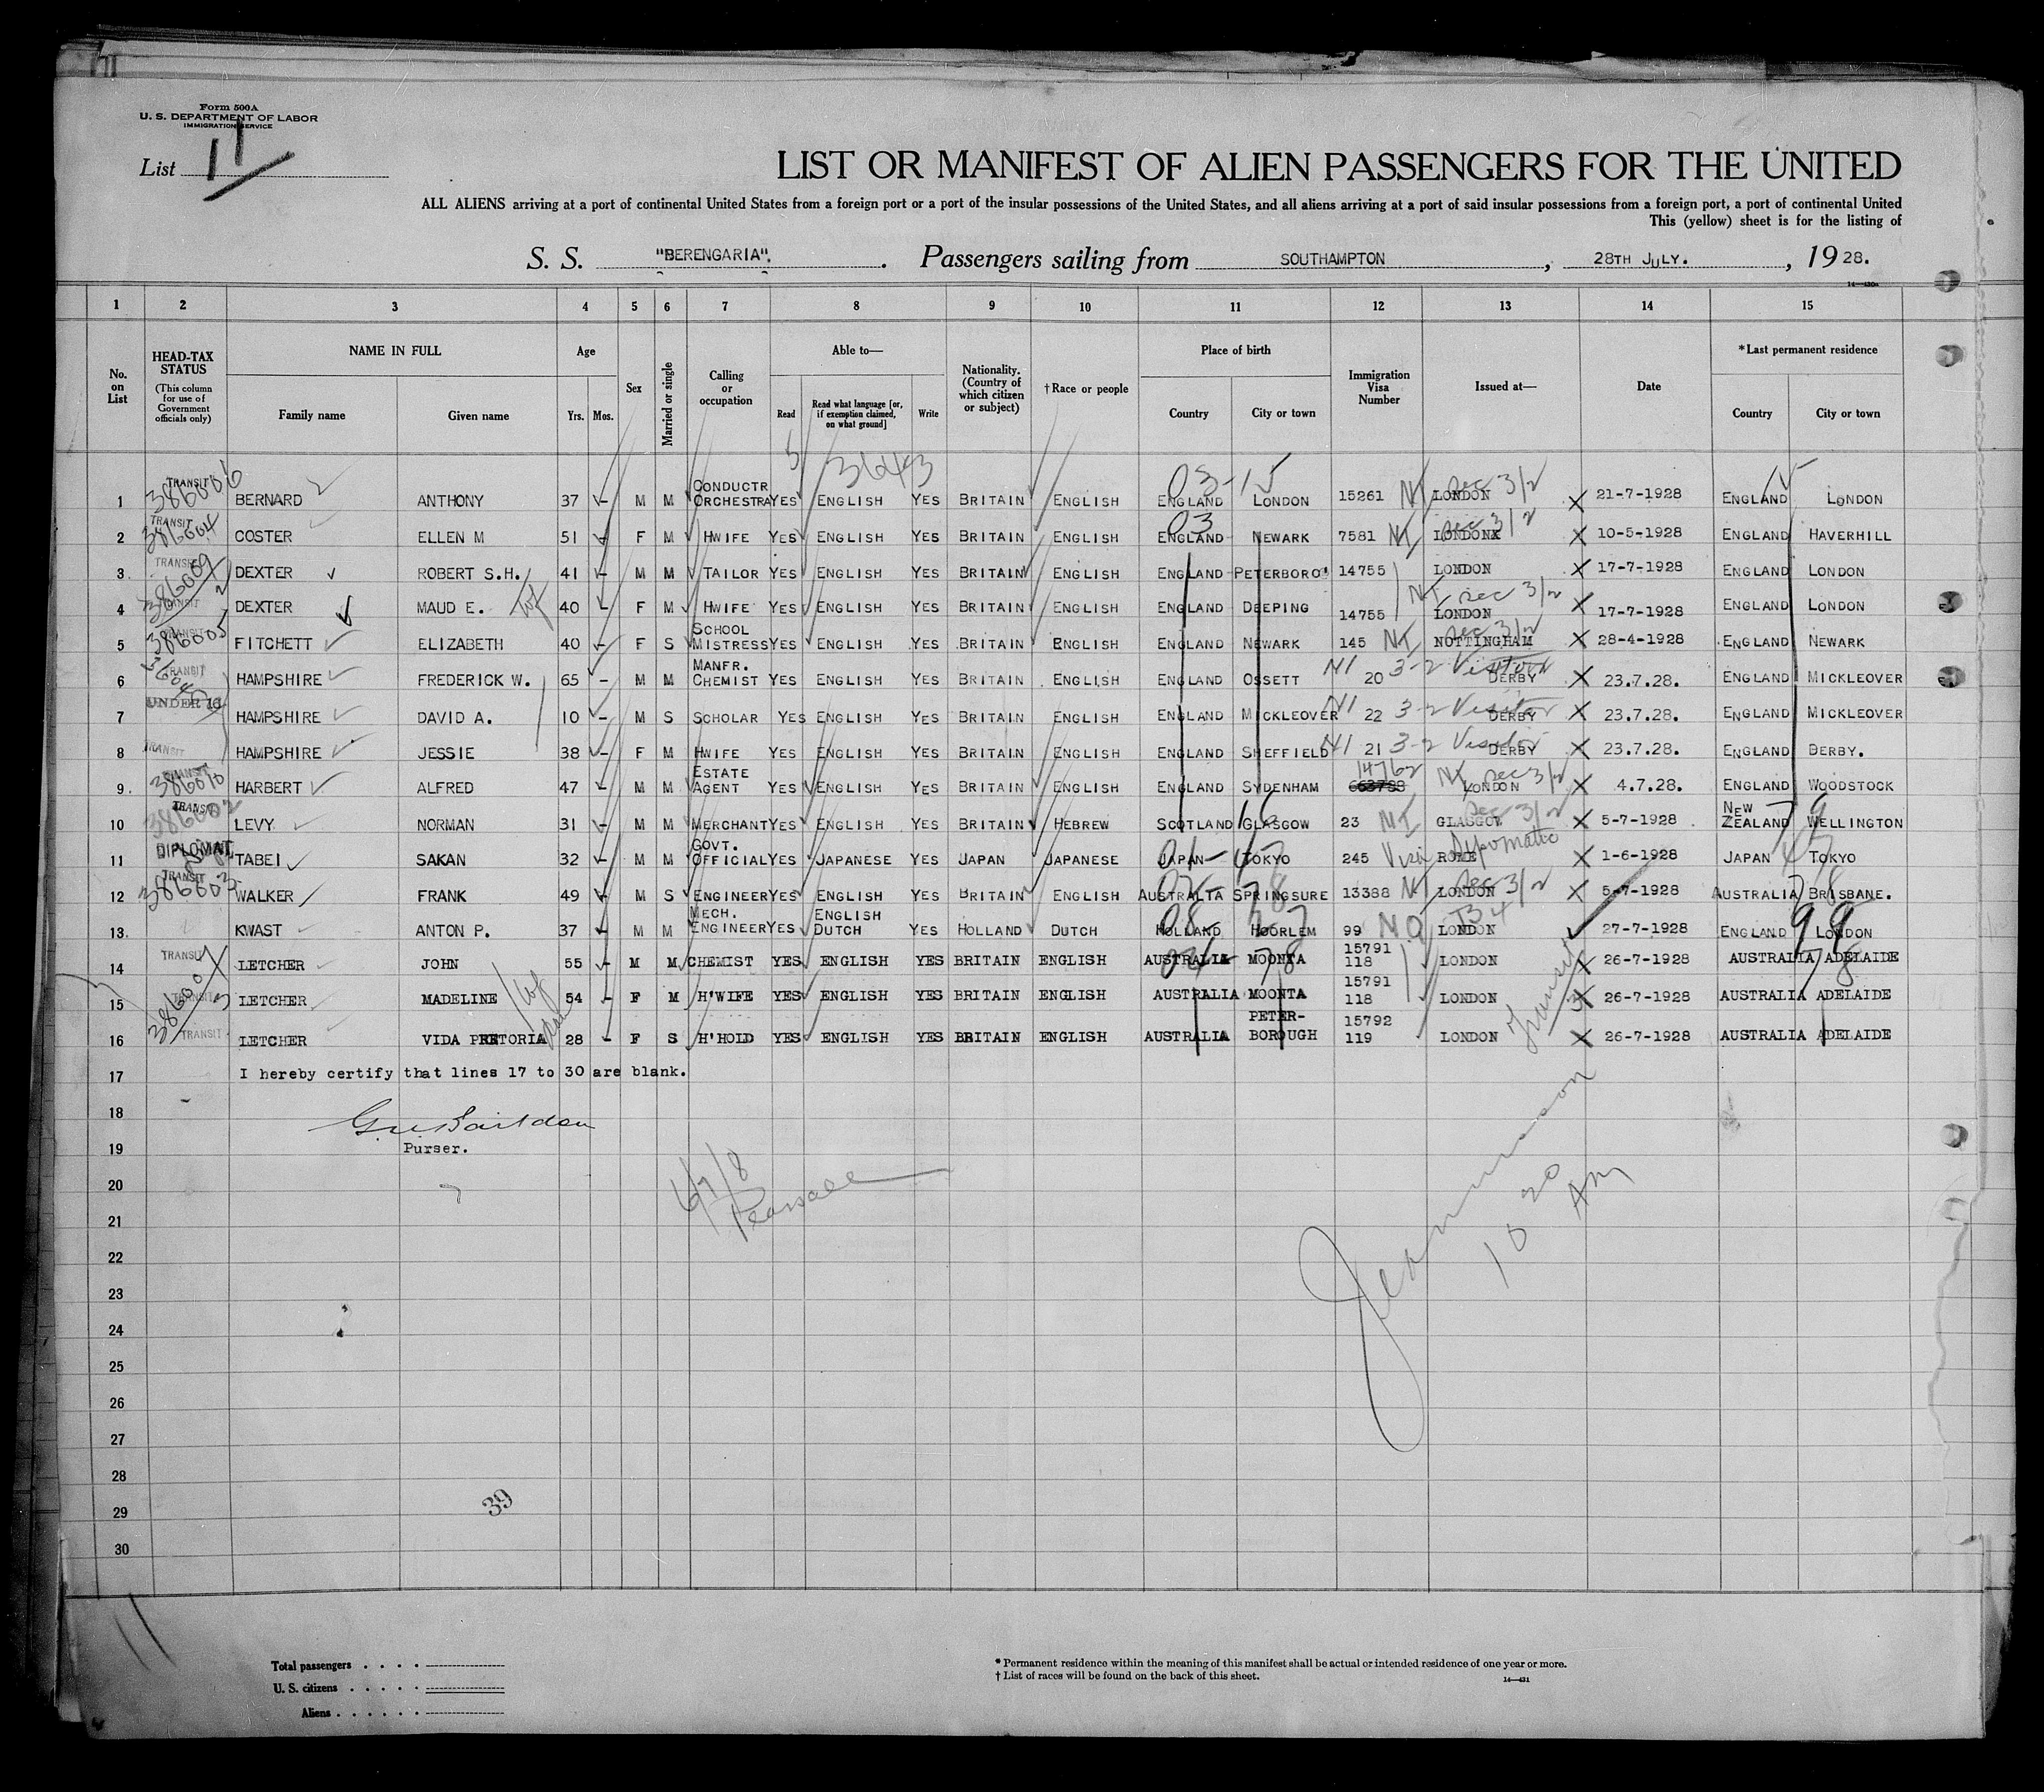 Form 500A
U. S. DEPARTMENT OF LABOR
IMMIGRATION SERVICE
List 11
LIST OR MANIFEST OF ALIEN PASSENGERS FOR THE UNITED
ALL ALIENS arriving at a port of continental United States from a foreign port or a port of the insular possessions of the United States, and all aliens arriving at a port of said insular possessions from a foreign port, a port of continental United
This (yellow) sheet is for the listing of
S. S. "BERENGARIA". Passengers sailing from SOUTHAMPTON, 28TH JULY., 1928.
1 2 3 4 5 6 7 8 9 10 11 12 13 14 15
No. on List
HEAD-TAX STATUS
(This column for use of Government officials only)
NAME IN FULL
Family name Given name
Age
Yrs. Mos.
Sex
Married or single
Calling or occupation
Able to—
Read Read what language [or, if exemption claimed, on what ground] Write
Nationality. (Country of which citizen or subject)
†Race or people
Place of birth
Country City or town
Immigration Visa Number
Issued at—
Date
*Last permanent residence
Country City or town
3643 03-15 15
1 TRANSIT 386006 BERNARD ANTHONY 37 - M M CONDUCTR ORCHESTRA YES ENGLISH YES BRITAIN ENGLISH ENGLAND LONDON 15261 NI LONDON Sec 3/2 X 21-7-1928 ENGLAND LONDON
2 TRANSIT 386004 COSTER ELLEN M 51 - F M HWIFE YES ENGLISH YES BRITAIN ENGLISH 03 ENGLAND NEWARK 7581 NI LONDON Sec 3/2 X 10-5-1928 ENGLAND HAVERHILL
3. TRANSIT 386009 DEXTER ROBERT S.H. 41 - M M TAILOR YES ENGLISH YES BRITAIN ENGLISH ENGLAND PETERBORO' 14755 LONDON X 17-7-1928 ENGLAND LONDON
4 TRANSIT DEXTER MAUD E. wf 40 - F M HWIFE YES ENGLISH YES BRITAIN ENGLISH ENGLAND DEEPING 14755 NI LONDON Sec 3/2 X 17-7-1928 ENGLAND LONDON
5 TRANSIT 386005 FITCHETT ELIZABETH 40 - F S SCHOOL MISTRESS YES ENGLISH YES BRITAIN ENGLISH ENGLAND NEWARK 145 NI NOTTINGHAM Sec 3/2 X 28-4-1928 ENGLAND NEWARK
6 TRANSIT HAMPSHIRE FREDERICK W. 65 - M M MANFR. CHEMIST YES ENGLISH YES BRITAIN ENGLISH ENGLAND OSSETT NI 20 3-2 Visitor DERBY X 23.7.28. ENGLAND MICKLEOVER
7 UNDER 16 HAMPSHIRE DAVID A. 10 - M S SCHOLAR YES ENGLISH YES BRITAIN ENGLISH ENGLAND MICKLEOVER NI 22 3-2 Visitor DERBY X 23.7.28. ENGLAND MICKLEOVER
8 TRANSIT HAMPSHIRE JESSIE 38 - F M HWIFE YES ENGLISH YES BRITAIN ENGLISH ENGLAND SHEFFIELD NI 21 3-2 Visitor DERBY X 23.7.28. ENGLAND DERBY.
9. TRANSIT 386010 HARBERT ALFRED 47 - M M ESTATE AGENT YES ENGLISH YES BRITAIN ENGLISH ENGLAND SYDENHAM 14762 NI LONDON Sec 3/2 X 4.7.28. ENGLAND WOODSTOCK
10 TRANSIT 386002 LEVY NORMAN 31 - M M MERCHANT YES ENGLISH YES BRITAIN HEBREW SCOTLAND 16 GLASGOW 23 NI GLASGOW Sec 3/2 X 5-7-1928 NEW ZEALAND 79 WELLINGTON
11 DIPLOMAT TABEI SAKAN 32 - M M GOVT. OFFICIAL YES JAPANESE YES JAPAN JAPANESE JAPAN TOKYO 245 ROME Diplomatic X 1-6-1928 JAPAN TOKYO
12 TRANSIT 386003 WALKER FRANK 49 - M S ENGINEER YES ENGLISH YES BRITAIN ENGLISH AUSTRALIA 78 SPRINGSURE 13388 NI LONDON Sec 3/2 X 5-7-1928 AUSTRALIA 78 BRISBANE.
13. KWAST ANTON P. 37 - M M MECH. ENGINEER YES ENGLISH DUTCH YES HOLLAND DUTCH 08 HOLLAND HOORLEM 99 NQ LONDON 27-7-1928 ENGLAND 99 LONDON
14 TRANSIT LETCHER JOHN 55 - M M CHEMIST YES ENGLISH YES BRITAIN ENGLISH AUSTRALIA 78 MOONTA 15791 118 LONDON X 26-7-1928 AUSTRALIA 78 ADELAIDE
15 TRANSIT 386001 LETCHER MADELINE wf 54 - F M H'WIFE YES ENGLISH YES BRITAIN ENGLISH AUSTRALIA MOONTA 15791 118 LONDON Transit X 26-7-1928 AUSTRALIA ADELAIDE
16 TRANSIT LETCHER VIDA PRETORIA 28 - F S H'HOLD YES ENGLISH YES BRITAIN ENGLISH AUSTRALIA PETER-BOROUGH 15792 119 LONDON X 26-7-1928 AUSTRALIA ADELAIDE
17 I hereby certify that lines 17 to 30 are blank.
18
19 Purser.
20
6/7/8
Pearsall
10 20 AM
21
22
23
24
25
26
27
28
29
39
30
Total passengers
U. S. citizens
Aliens
* Permanent residence within the meaning of this manifest shall be actual or intended residence of one year or more.
† List of races will be found on the back of this sheet.
14—431